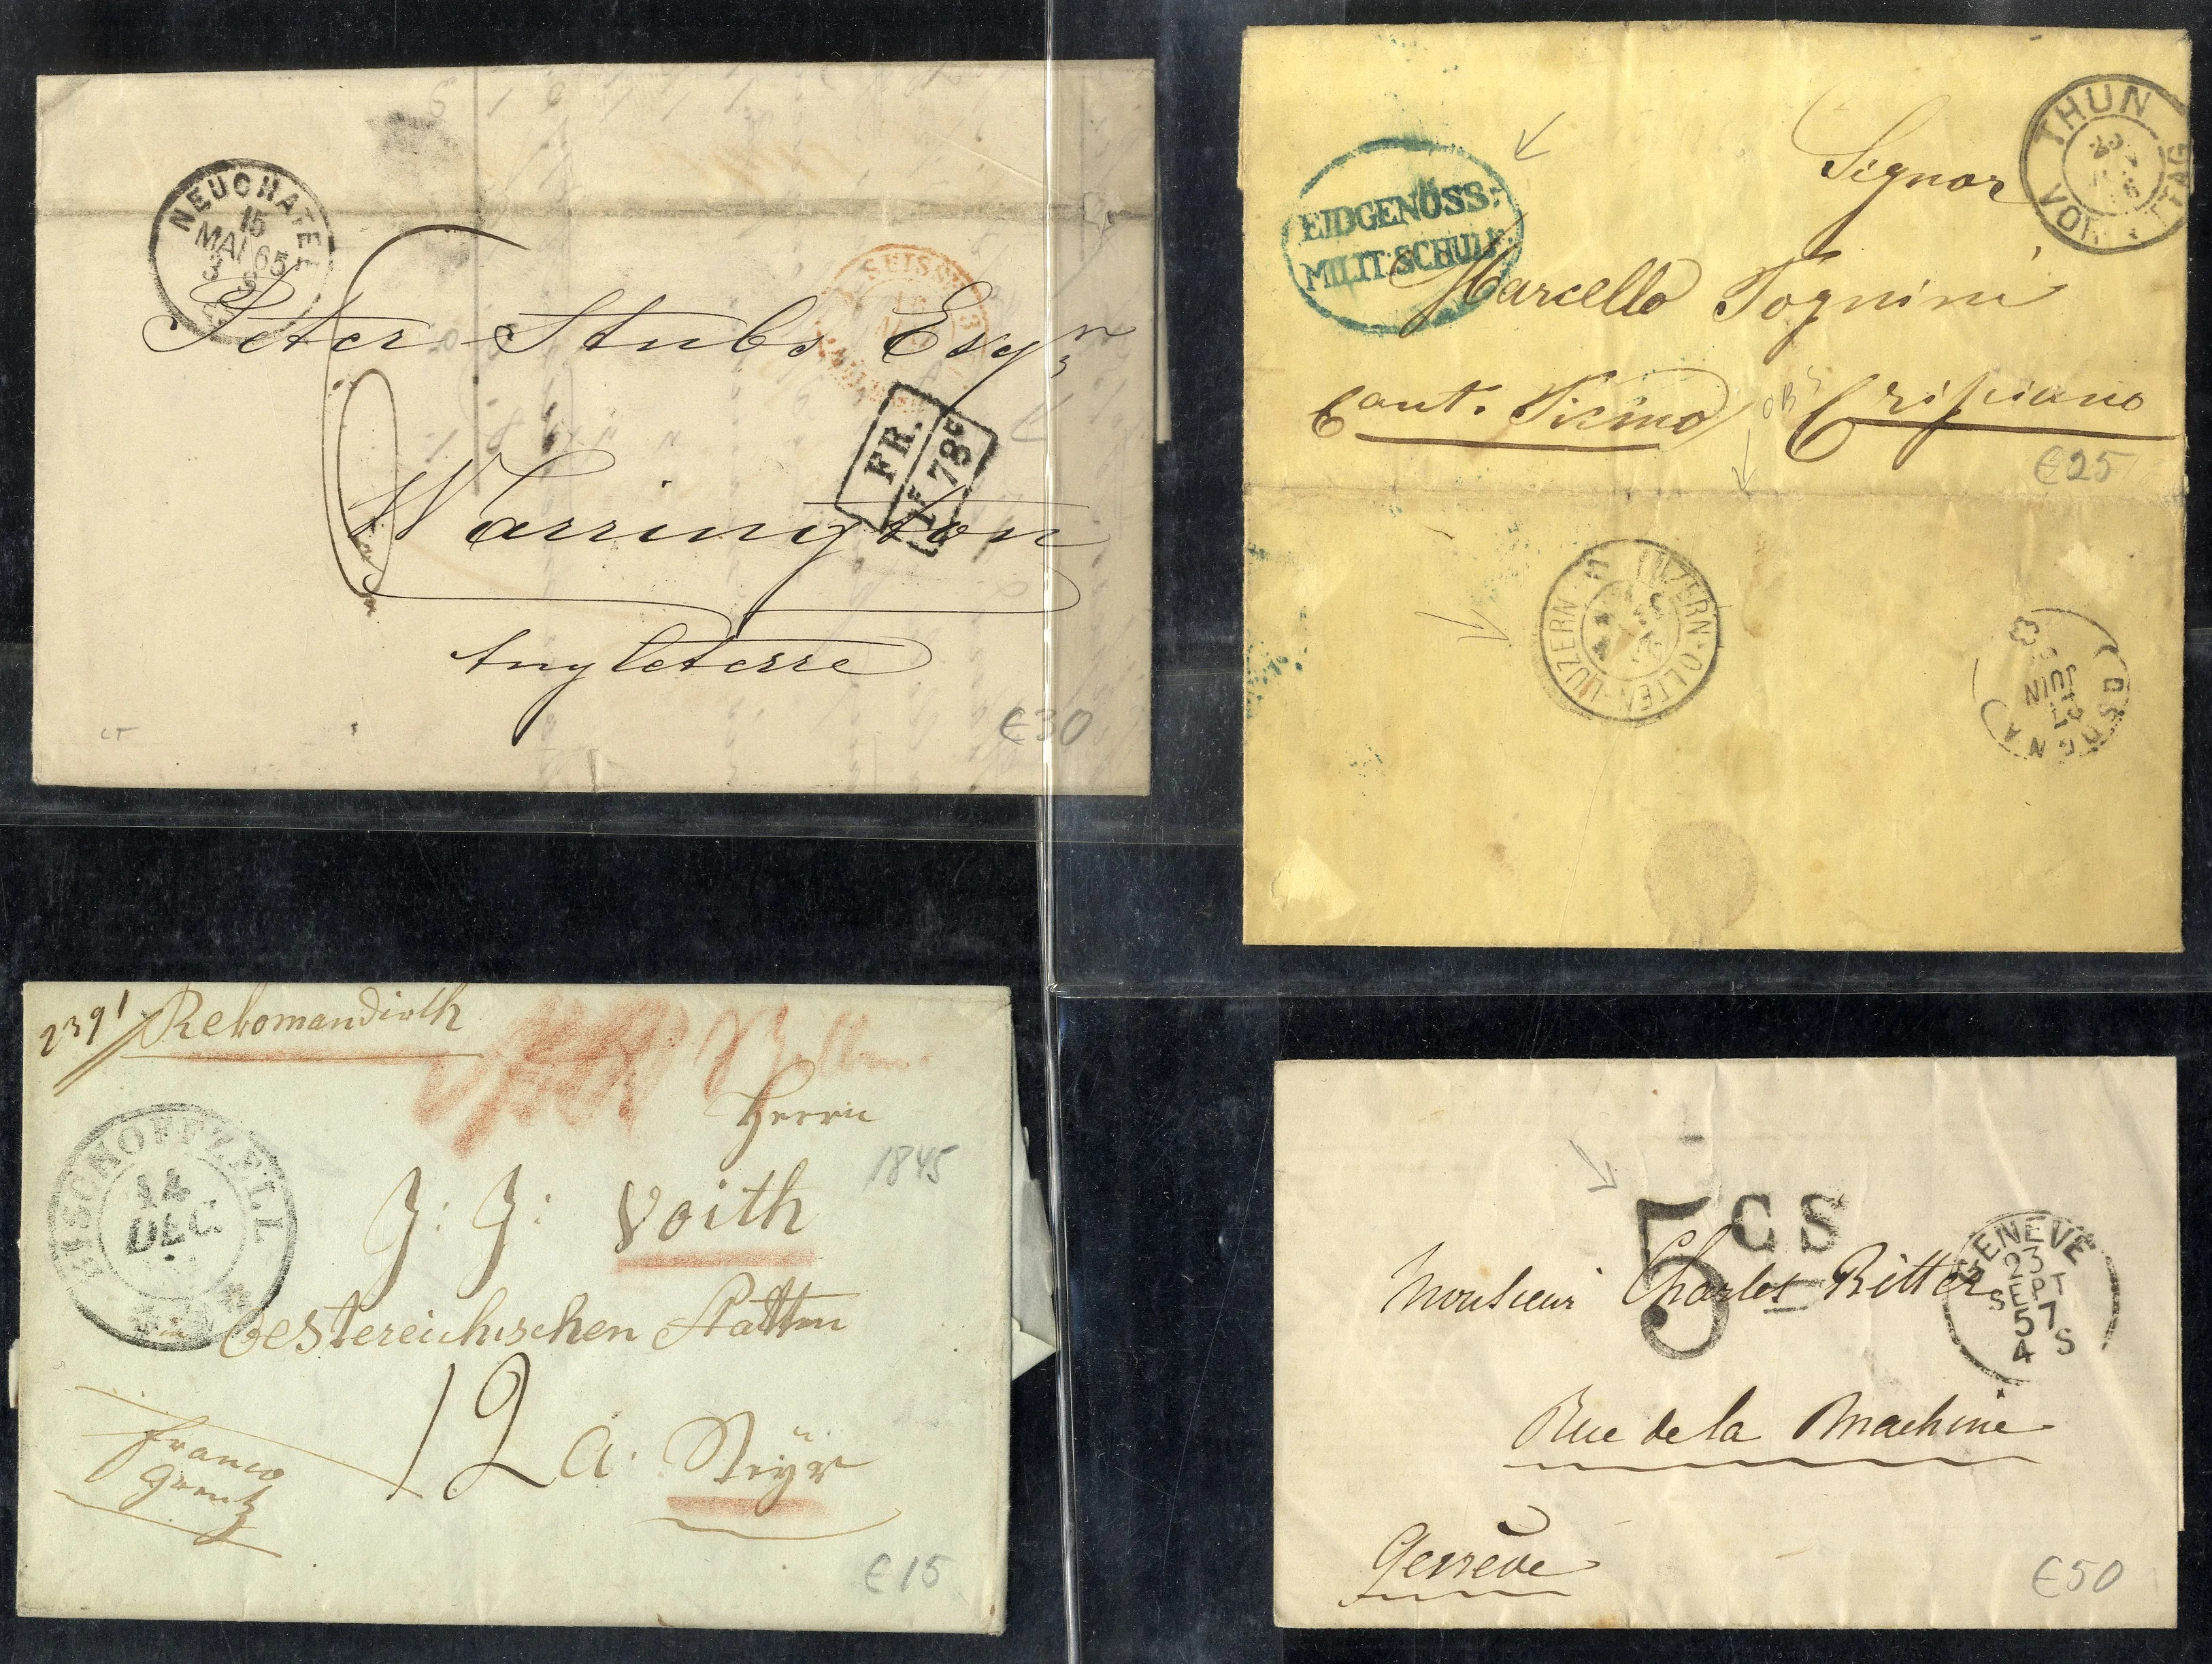 NEUCHATEL
15
MAI 65
3 S
SUISSE 3
Peter Stubs Esqr
FR.
1F 78c
Warrington
Angleterre
€30
EIDGENÖSS:
MILIT. SCHULE.
THUN
23
VOM
Signor
Marcello Tognini
Cant. Ticino
€25
LUZERN-OLTEN-LUZERN
OSOGNA
JUIN
239 / Rekomandirth
BISCHOFFZELL
14
DEC.
Herrn
1845
J: J: Voith
Oestereichischen Statten
12 a. Steÿr
Franco
Grentz
€15
5 CS
GENEVE
23
SEPT
57
4 S
Monsieur Charles Ritter
Rue de la Machine
Genève
€50